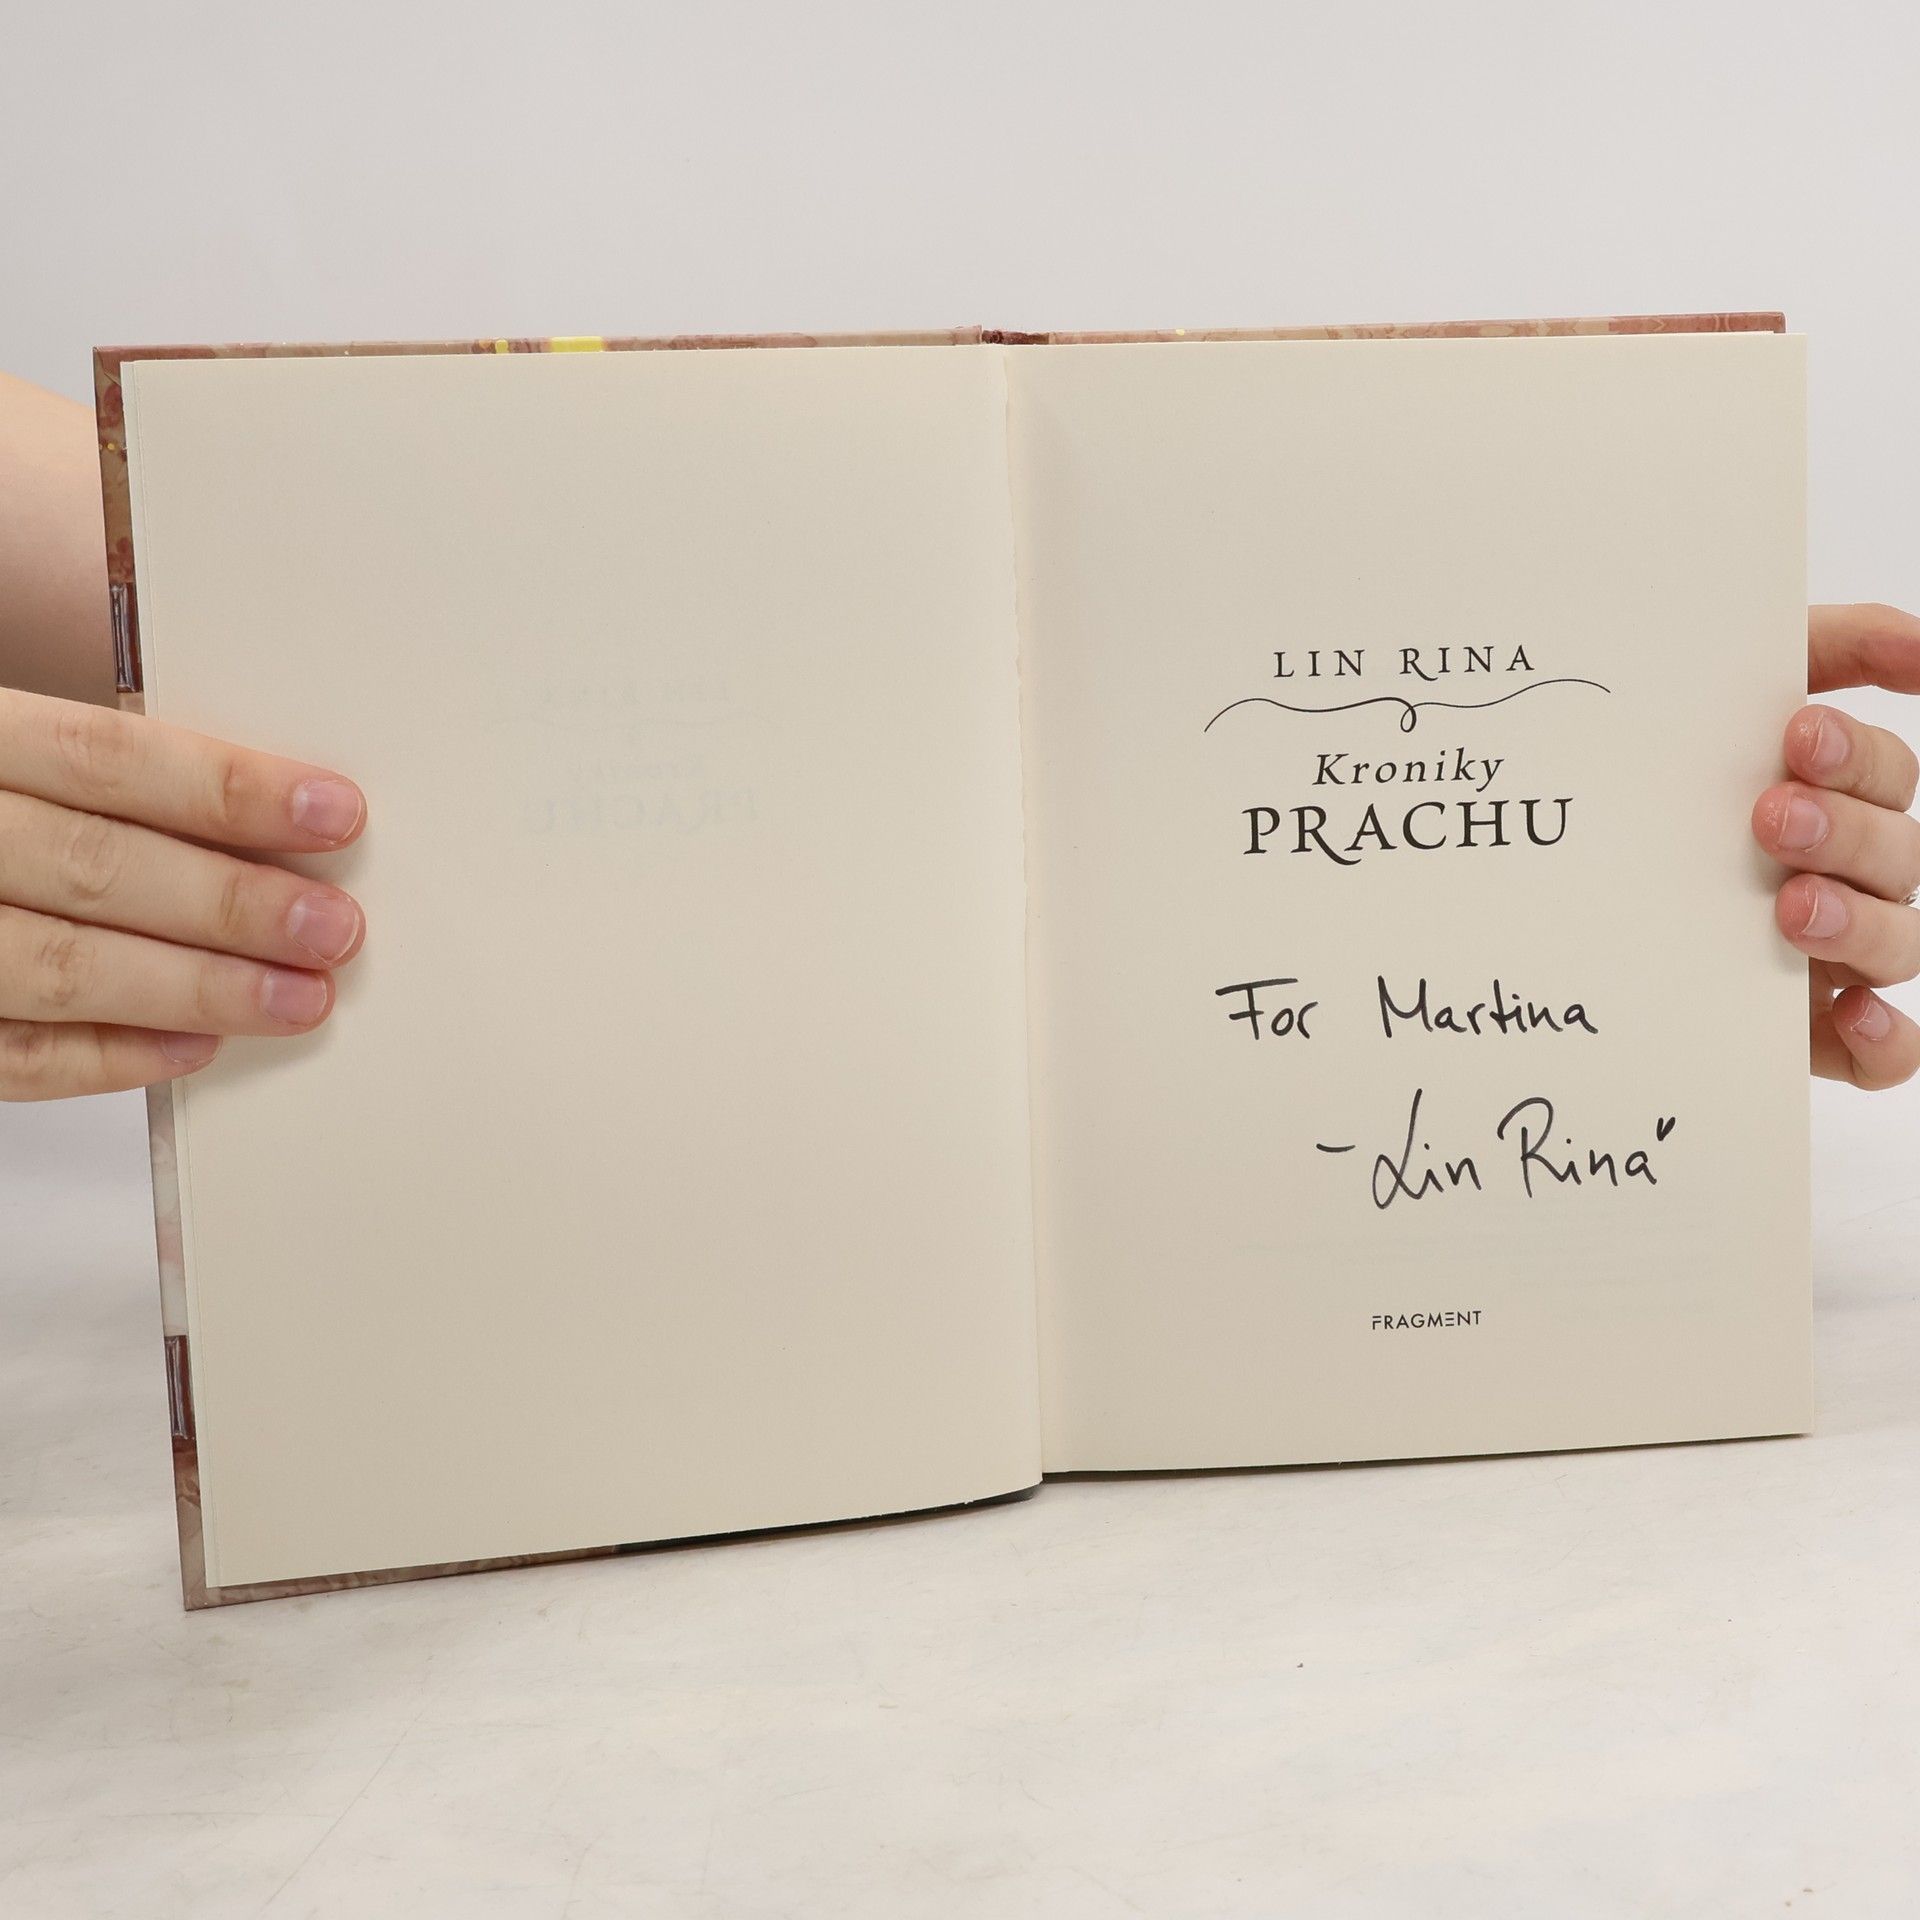 LIN RINA
Kroniky
PRACHU
For Martina
- Lin Rina
FRAGMENT